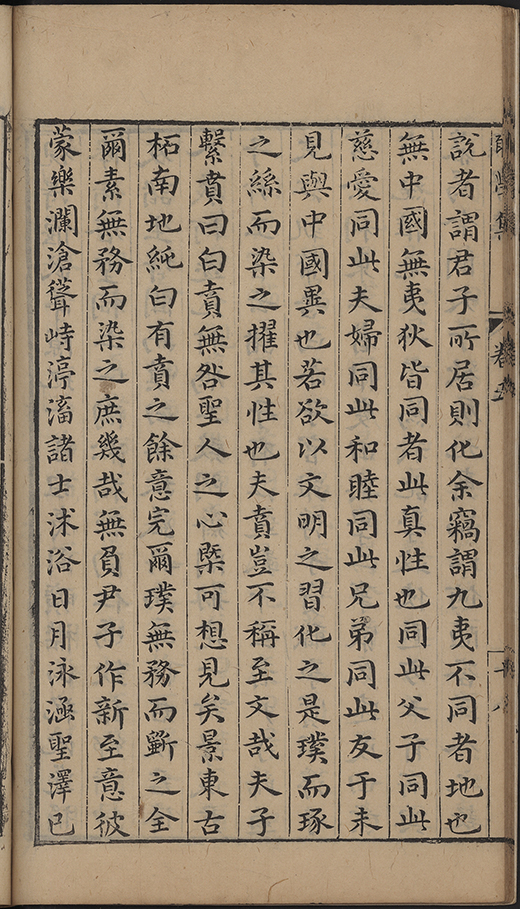 說者謂君子所居則化余竊謂九夷不同者地也
無中國無夷狄皆同者此真性也同此父子同此
慈愛同此夫婦同此和睦同此兄弟同此友于未
見與中國異也若欲以文明之習化之是璞而琢
之絲而染之擢其性也夫賁豈不稱至文哉夫子
繫賁曰白賁無咎聖人之心槩可想見矣景東古
柘南地純白有賁之餘意完爾璞無務而斵之全
爾素無務而染之庶幾哉無負尹子作新至意彼
蒙樂瀾滄聳峙渟滀諸士沭浴日月泳涵聖澤已
卷五